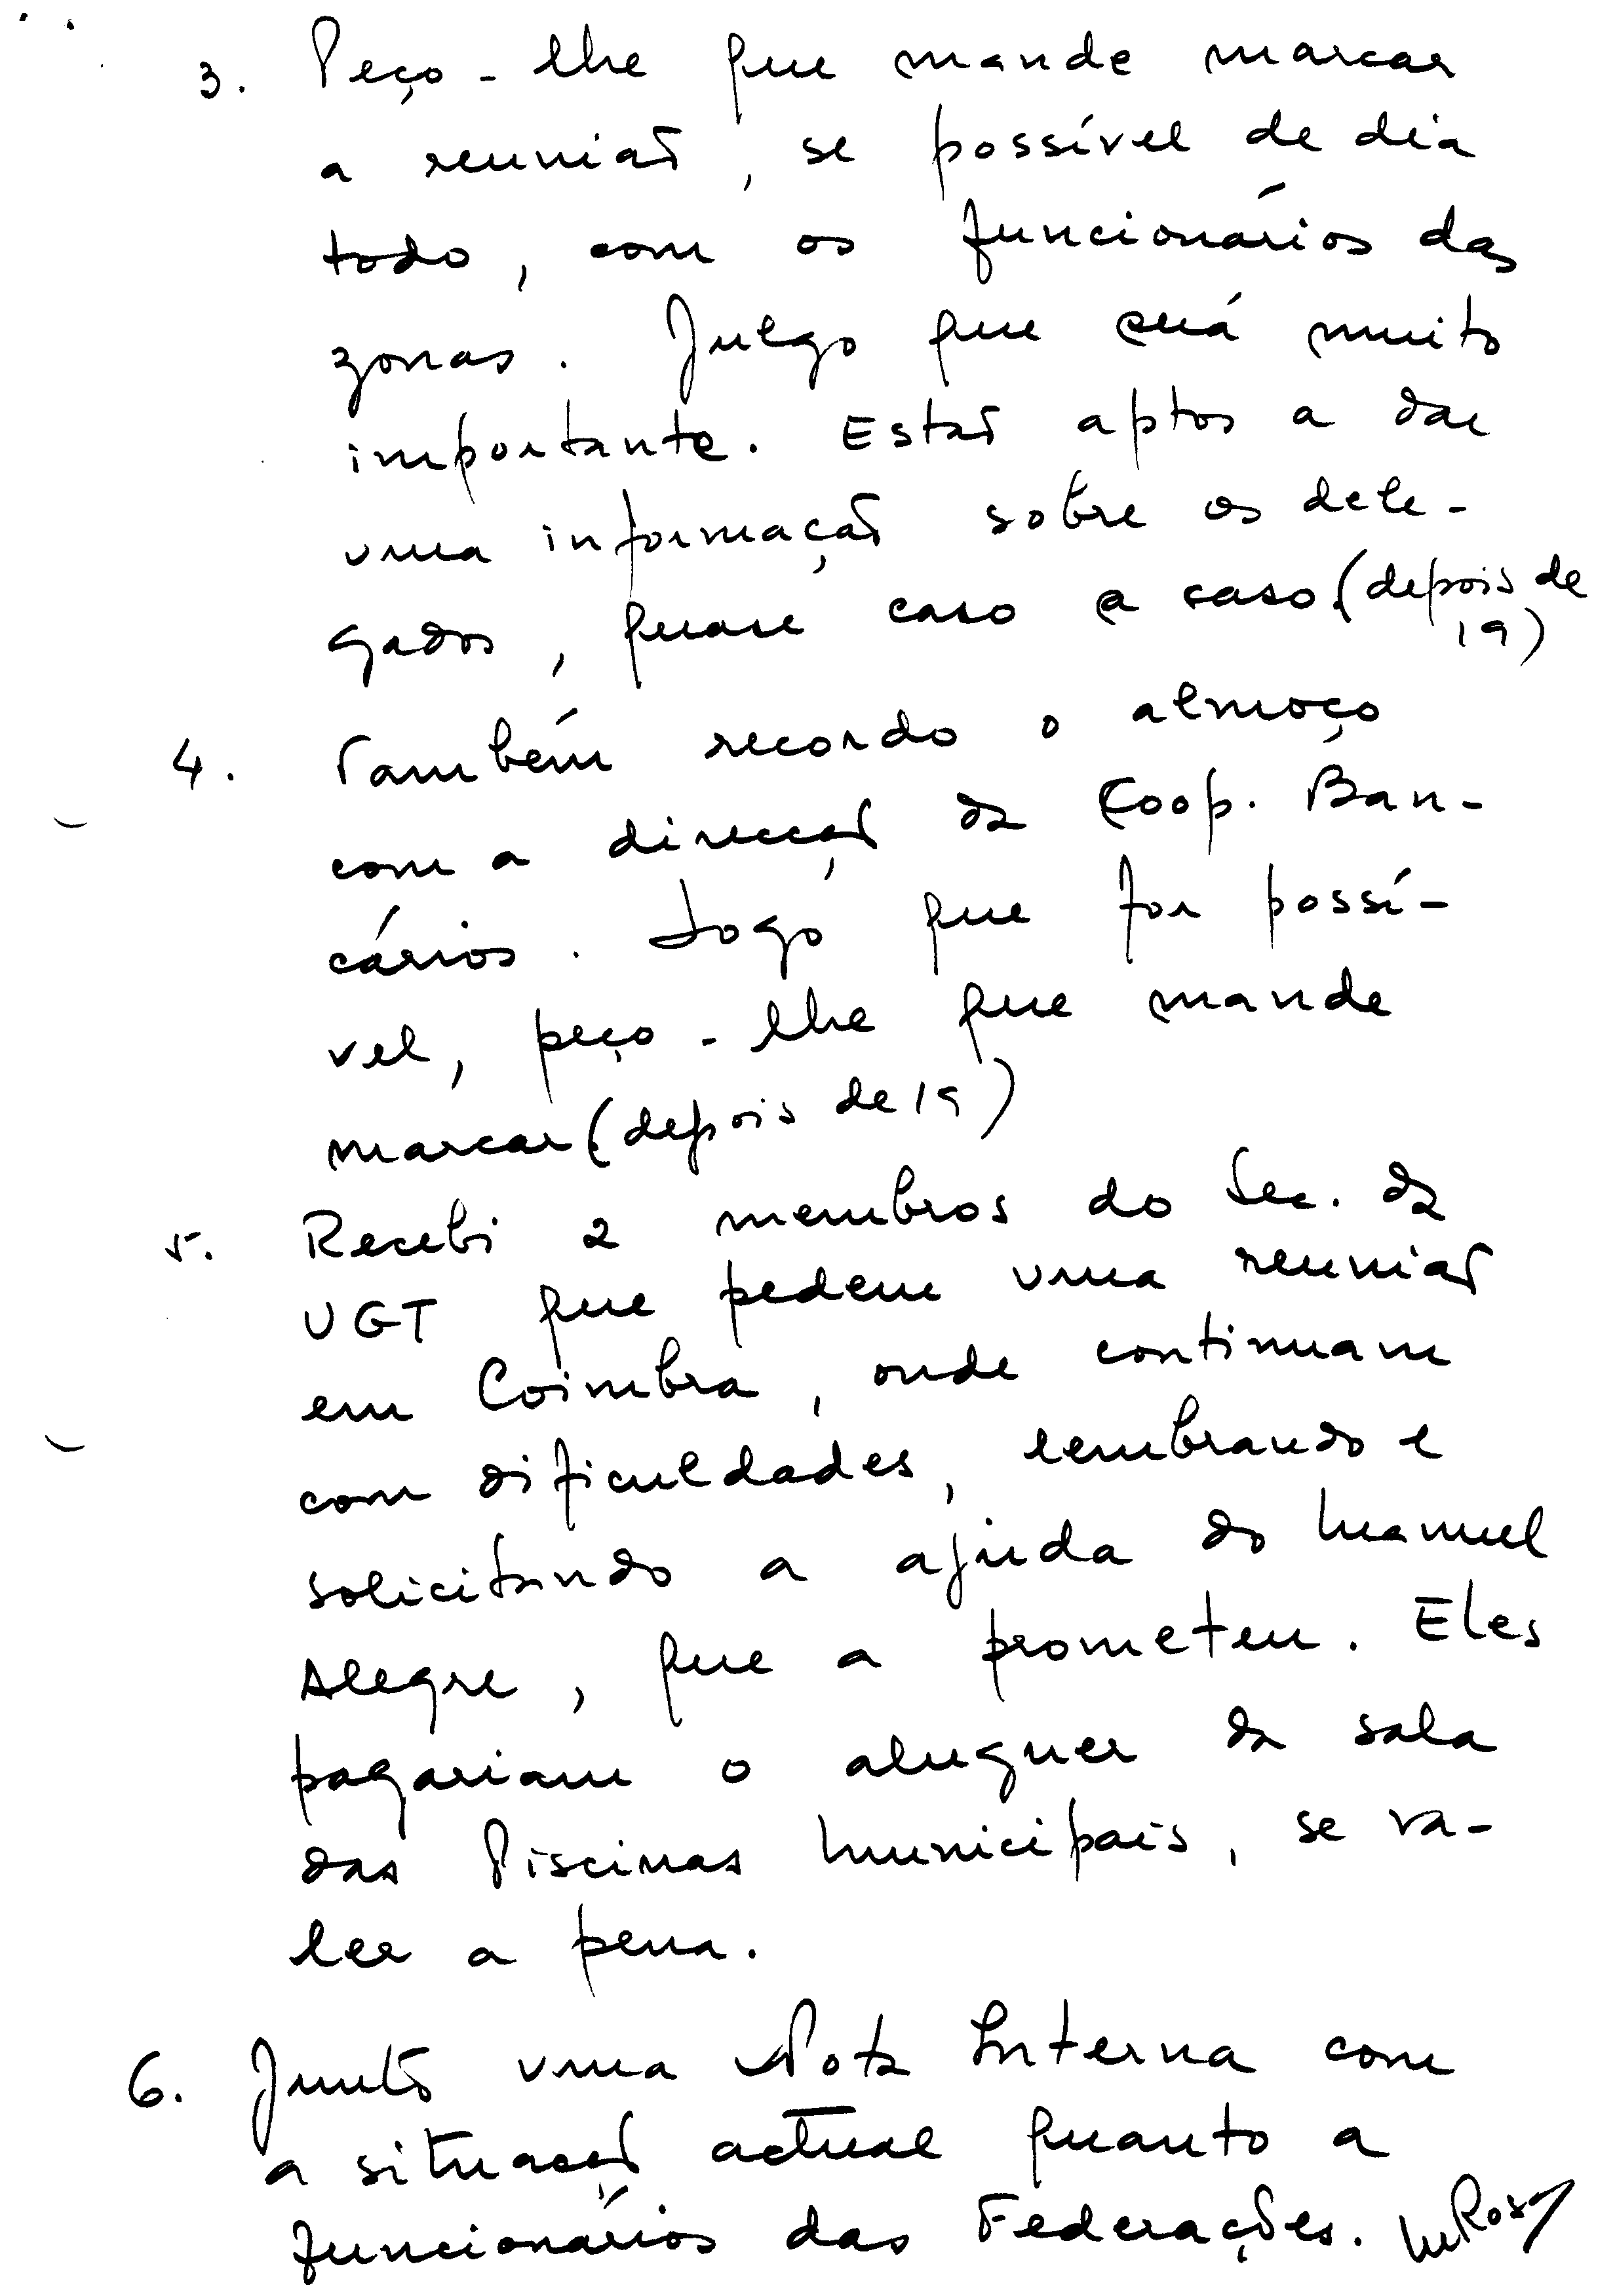 3. Peço-lhe que mande marcar
a reunião, se possível de dia
todo, com os funcionários das
zonas. Julgo que será muito
importante. Estão aptos a dar
uma informação sobre os dele-
gados, quase caso a caso. (depois de
19)
4. Também recordo o almoço
com a direcção da Coop. Ban-
cários. Logo que for possí-
vel, peço-lhe que mande
marcar. (depois de 19)
5. Recebi 2 membros do Sec. da
UGT que pedem uma reunião
em Coimbra, onde continuam
com dificuldades, lembrando e
solicitando a ajuda do Manuel
Alegre, que a prometeu. Eles
pagariam o aluguer da sala
das Piscinas Municipais, se va-
ler a pena.
6. Junto uma Nota Interna com
a situação actual quanto a
funcionários das Federações.